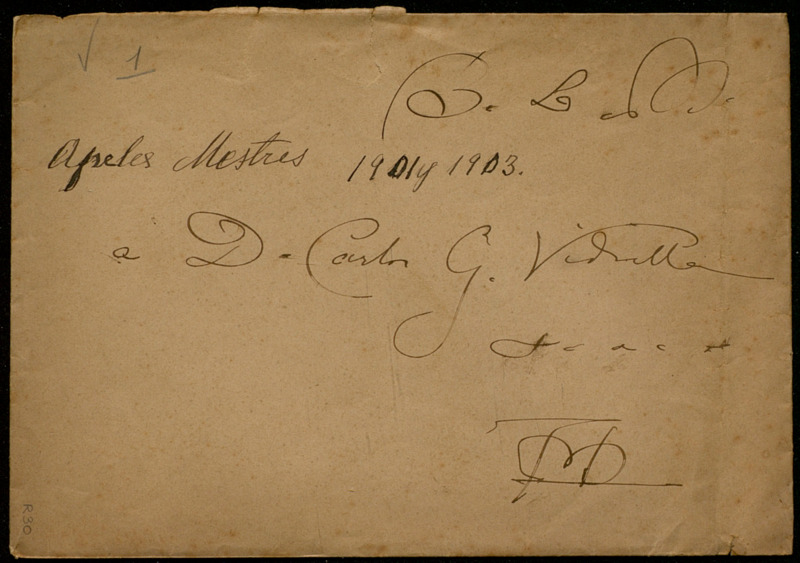 √ 1
B. L. M.
Apeles Mestres 1901 y 1903.
a D. Carlos G. Vidiella
R30